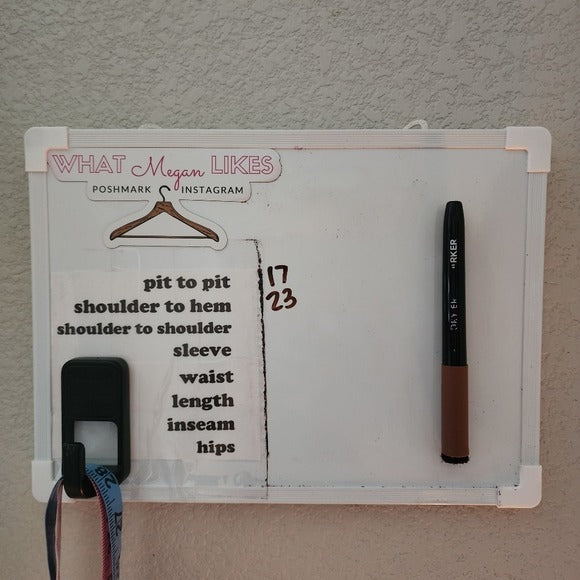 WHAT Megan LIKES
POSHMARK INSTAGRAM
pit to pit 17
shoulder to hem 23
shoulder to shoulder
sleeve
waist
length
inseam
hips
DRY ER RKER